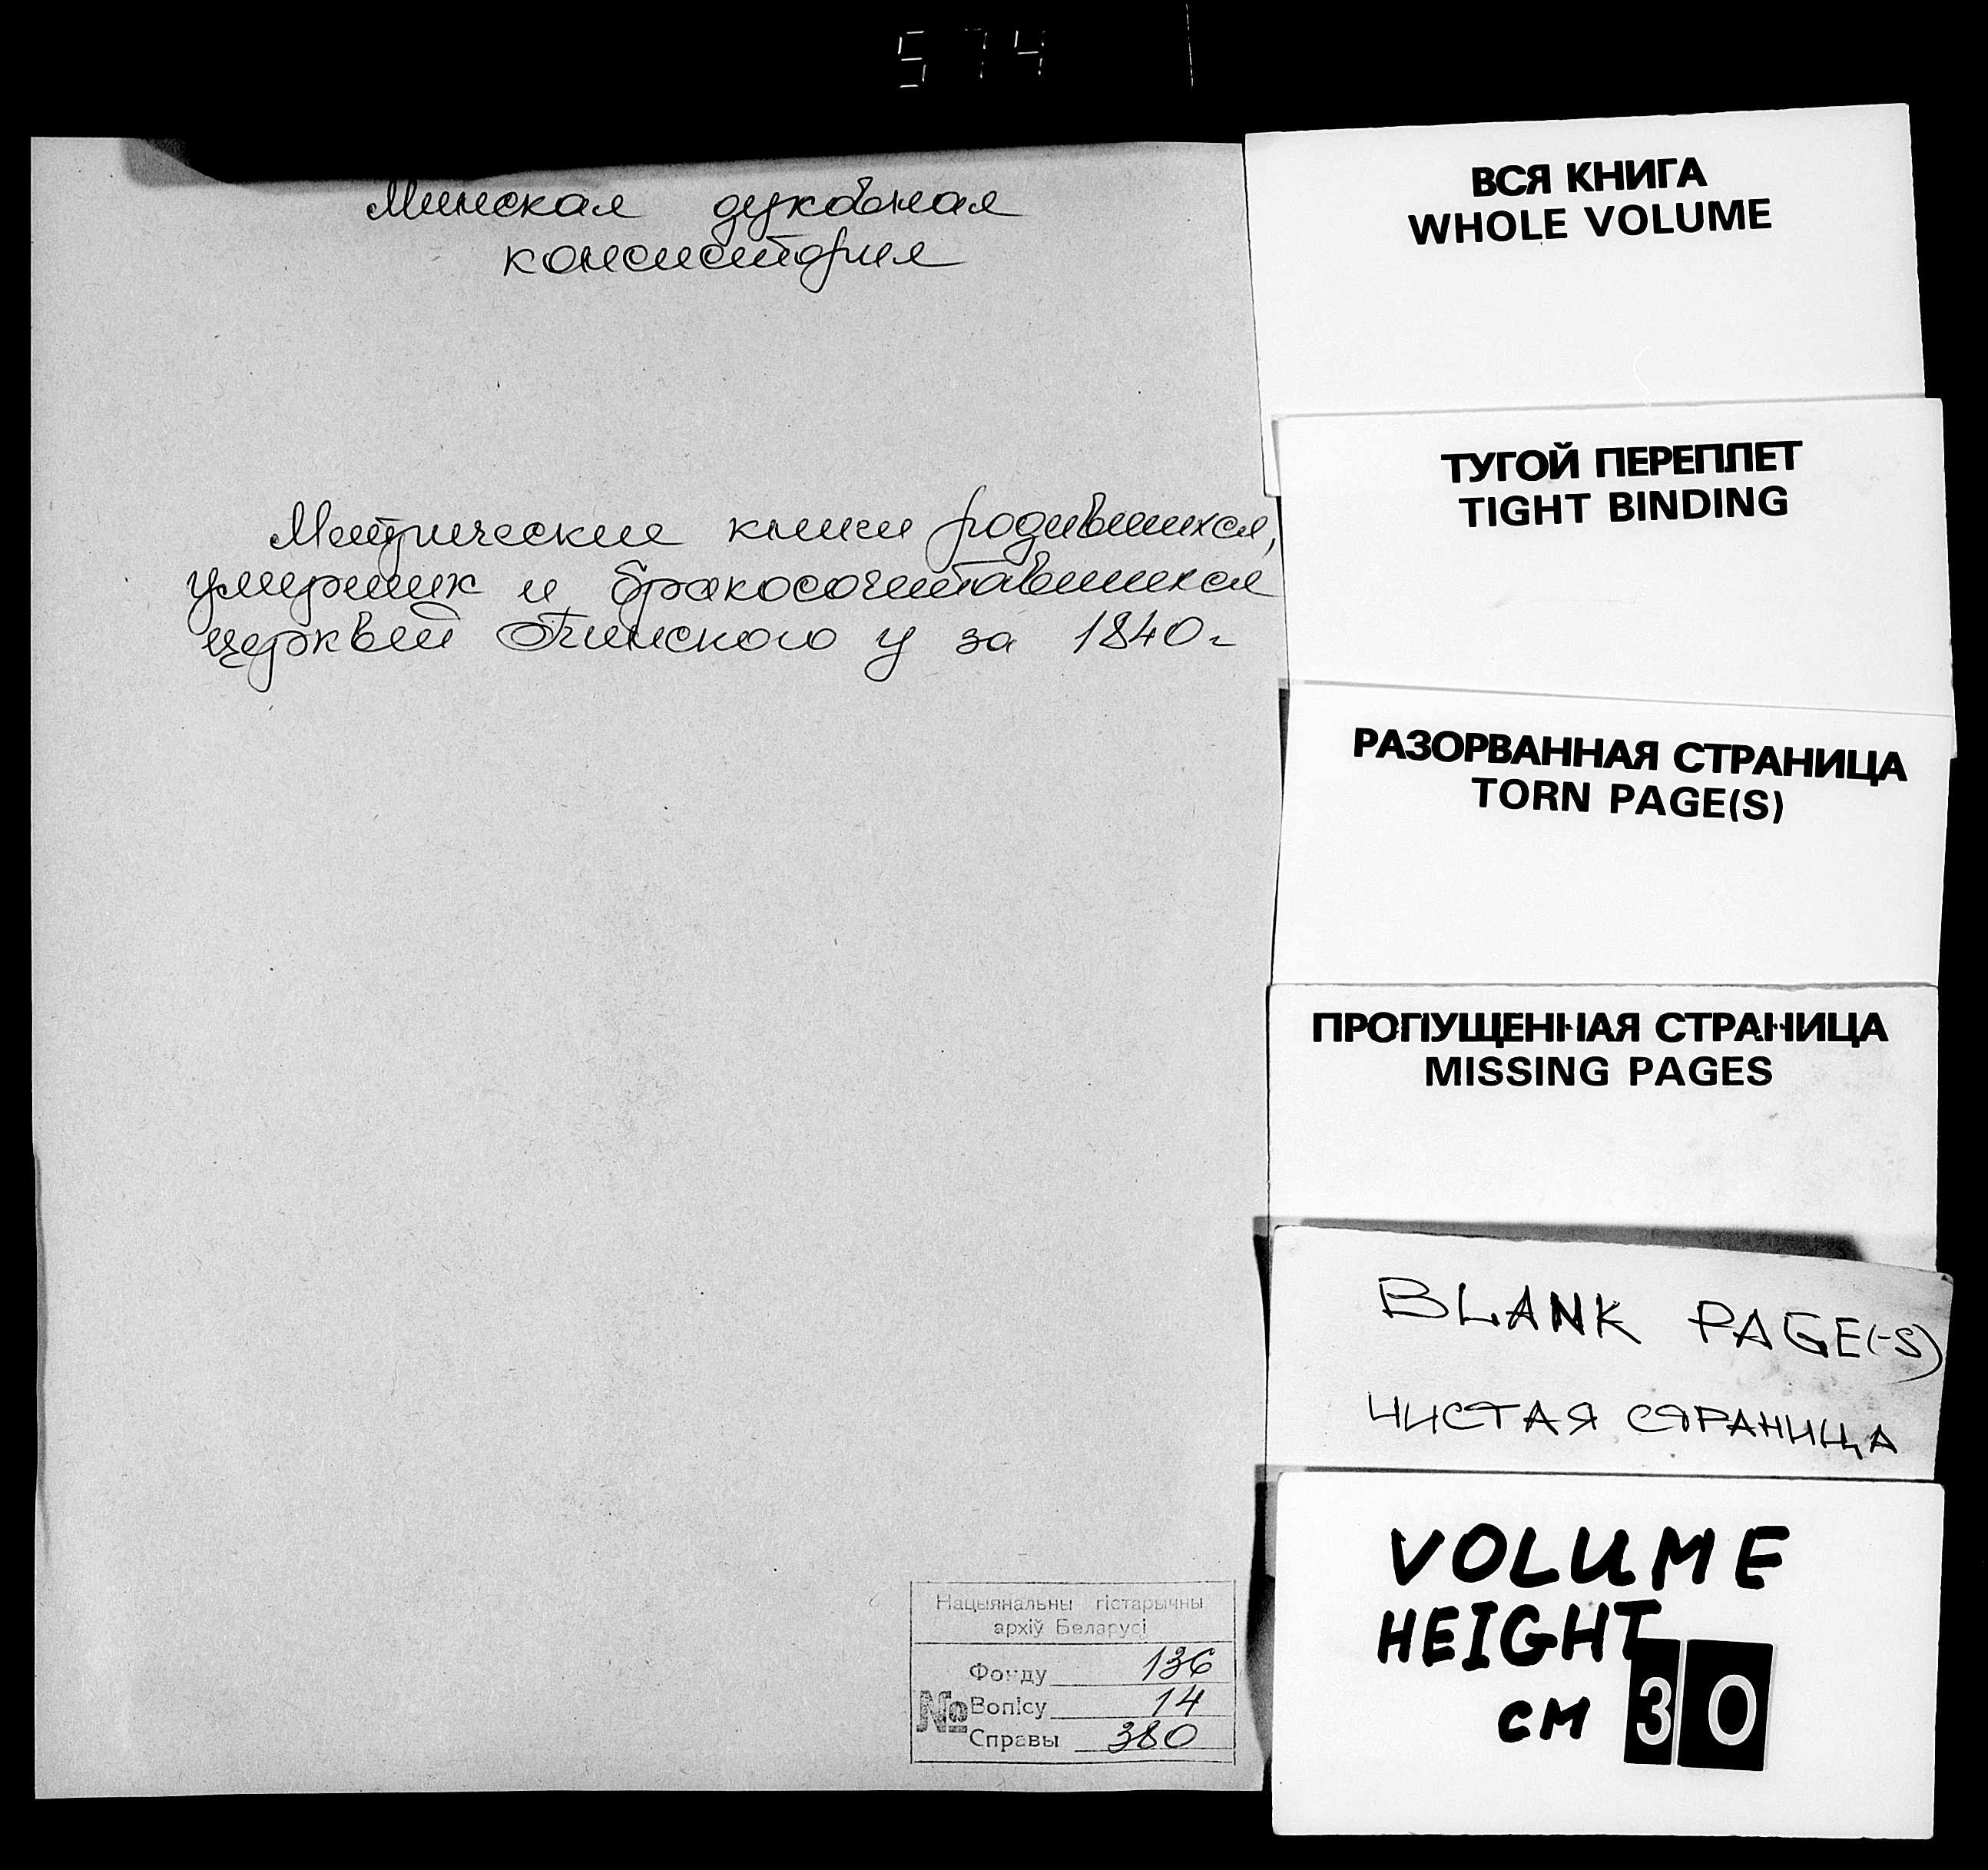 574
Минская духовная
консистория
Метрические книги родившихся,
умерших и бракосочетавшихся
церквей Пинского у за 1840 г
Нацыянальны гістарычны
архіў Беларусі
Фонду 136
№ Вопісу 14
Справы 380
ВСЯ КНИГА
WHOLE VOLUME
ТУГОЙ ПЕРЕПЛЕТ
TIGHT BINDING
РАЗОРВАННАЯ СТРАНИЦА
TORN PAGE(S)
ПРОПУЩЕННАЯ СТРАНИЦА
MISSING PAGES
BLANK PAGE(-S)
ЧИСТАЯ СТРАНИЦА
VOLUME
HEIGHT
CM 30